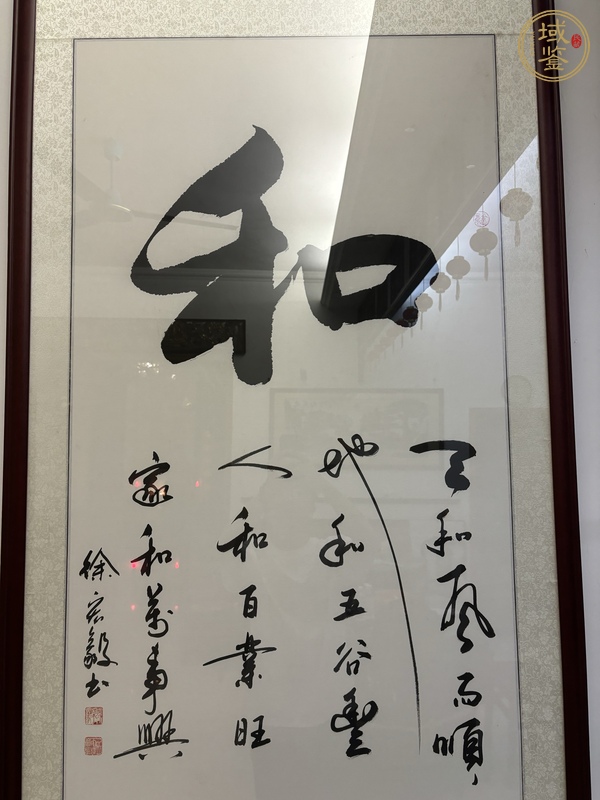 和
天和风雨順
地和五谷豐
人和百業旺
家和萬事興
徐宏毅书
域鉴